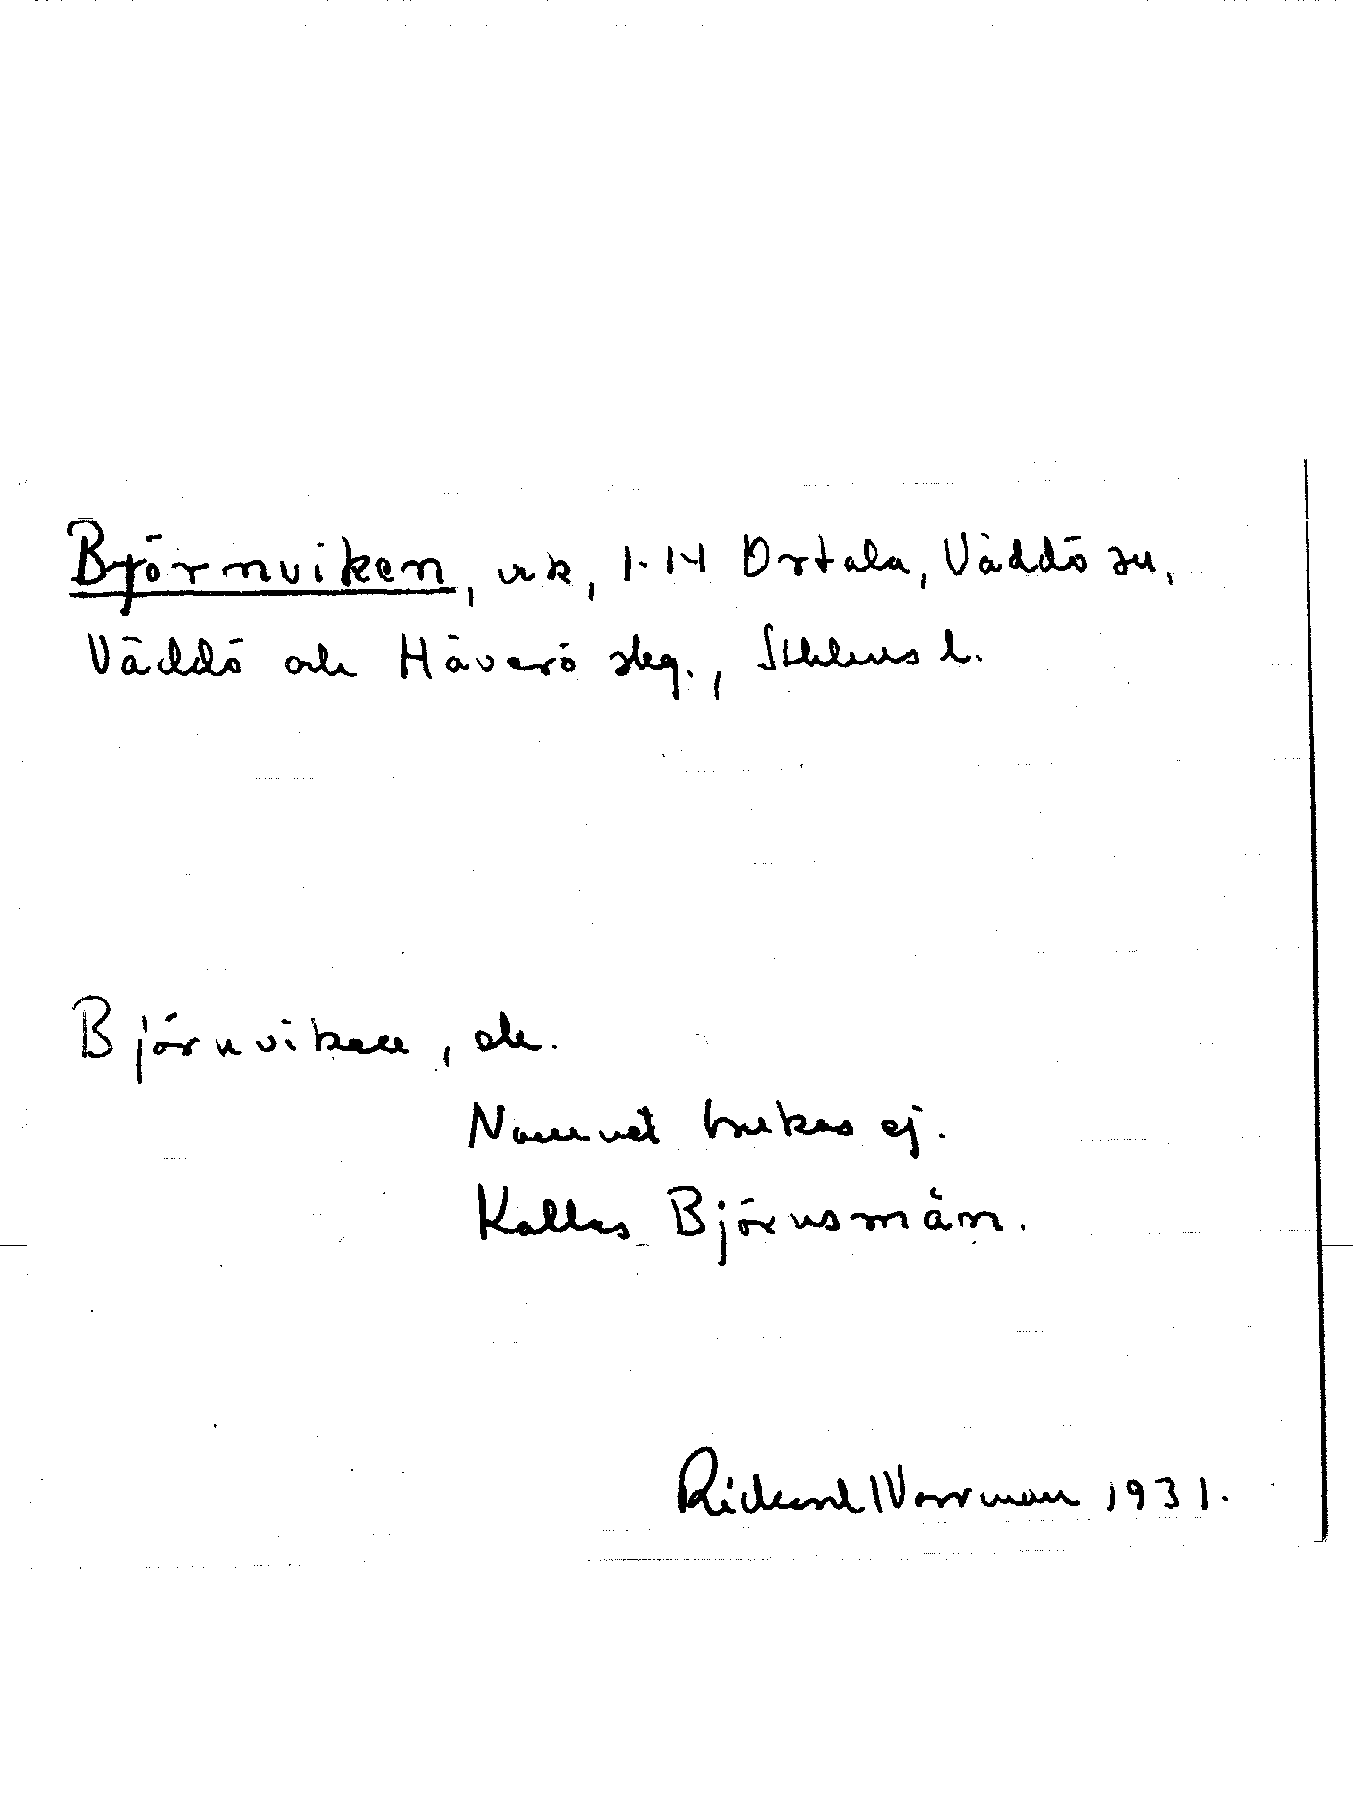 Björnviken, vik, 1-14 Ortala, Väddö sn,
Väddö och Häverö skg., Sthlms l.
Björnviken, ek.
Namnet brukas ej.
Kallas Björnsmärn.
Rickard Norrman 1931.